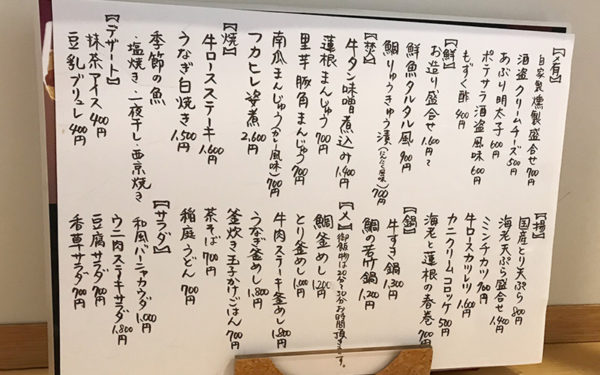 【〆肴】
自家製燻製盛合せ 700円
酒盗クリームチーズ 500円
あぶり明太子 600円
ポテサラ酒盗風味 600円
もずく酢 400円
【鮮】
お造り盛合せ 1.600円〜
鮮魚タルタル風 900円
鯛りゅうきゅう漬 700円
【焚】
牛タン味噌煮込み 1.400円
蓮根まんじゅう 700円
里芋豚角まんじゅう 700円
南瓜まんじゅう(カレー風味) 700円
フカヒレ姿煮 2.600円
【焼】
牛ロースステーキ 1.600円
うなぎ白焼き 1.500円
季節の魚
・塩焼き・一夜干し・西京焼き
【デザート】
抹茶アイス 400円
豆乳ブリュレ 400円
【揚】
国産とり天ぷら 800円
海老天ぷら盛合せ 1.400円
ミンチカツ 900円
牛ロースカツレツ 1.600円
カニクリームコロッケ 500円
海老と蓮根の春巻 700円
【鍋】
牛すき鍋 1.300円
鯛の若竹鍋 1.200円
【〆】御飯物は20分〜30分お時間頂きます。
鯛釜めし 1.200円
とり釜めし 1.000円
牛肉ステーキ釜めし 1.800円
うなぎ釜めし 1.800円
釜炊き玉子かけごはん 700円
茶そば 700円
稲庭うどん 700円
【サラダ】
和風バーニャカウダ 1.000円
ウニ肉ステーキサラダ 1.800円
豆腐サラダ 700円
香草サラダ 700円